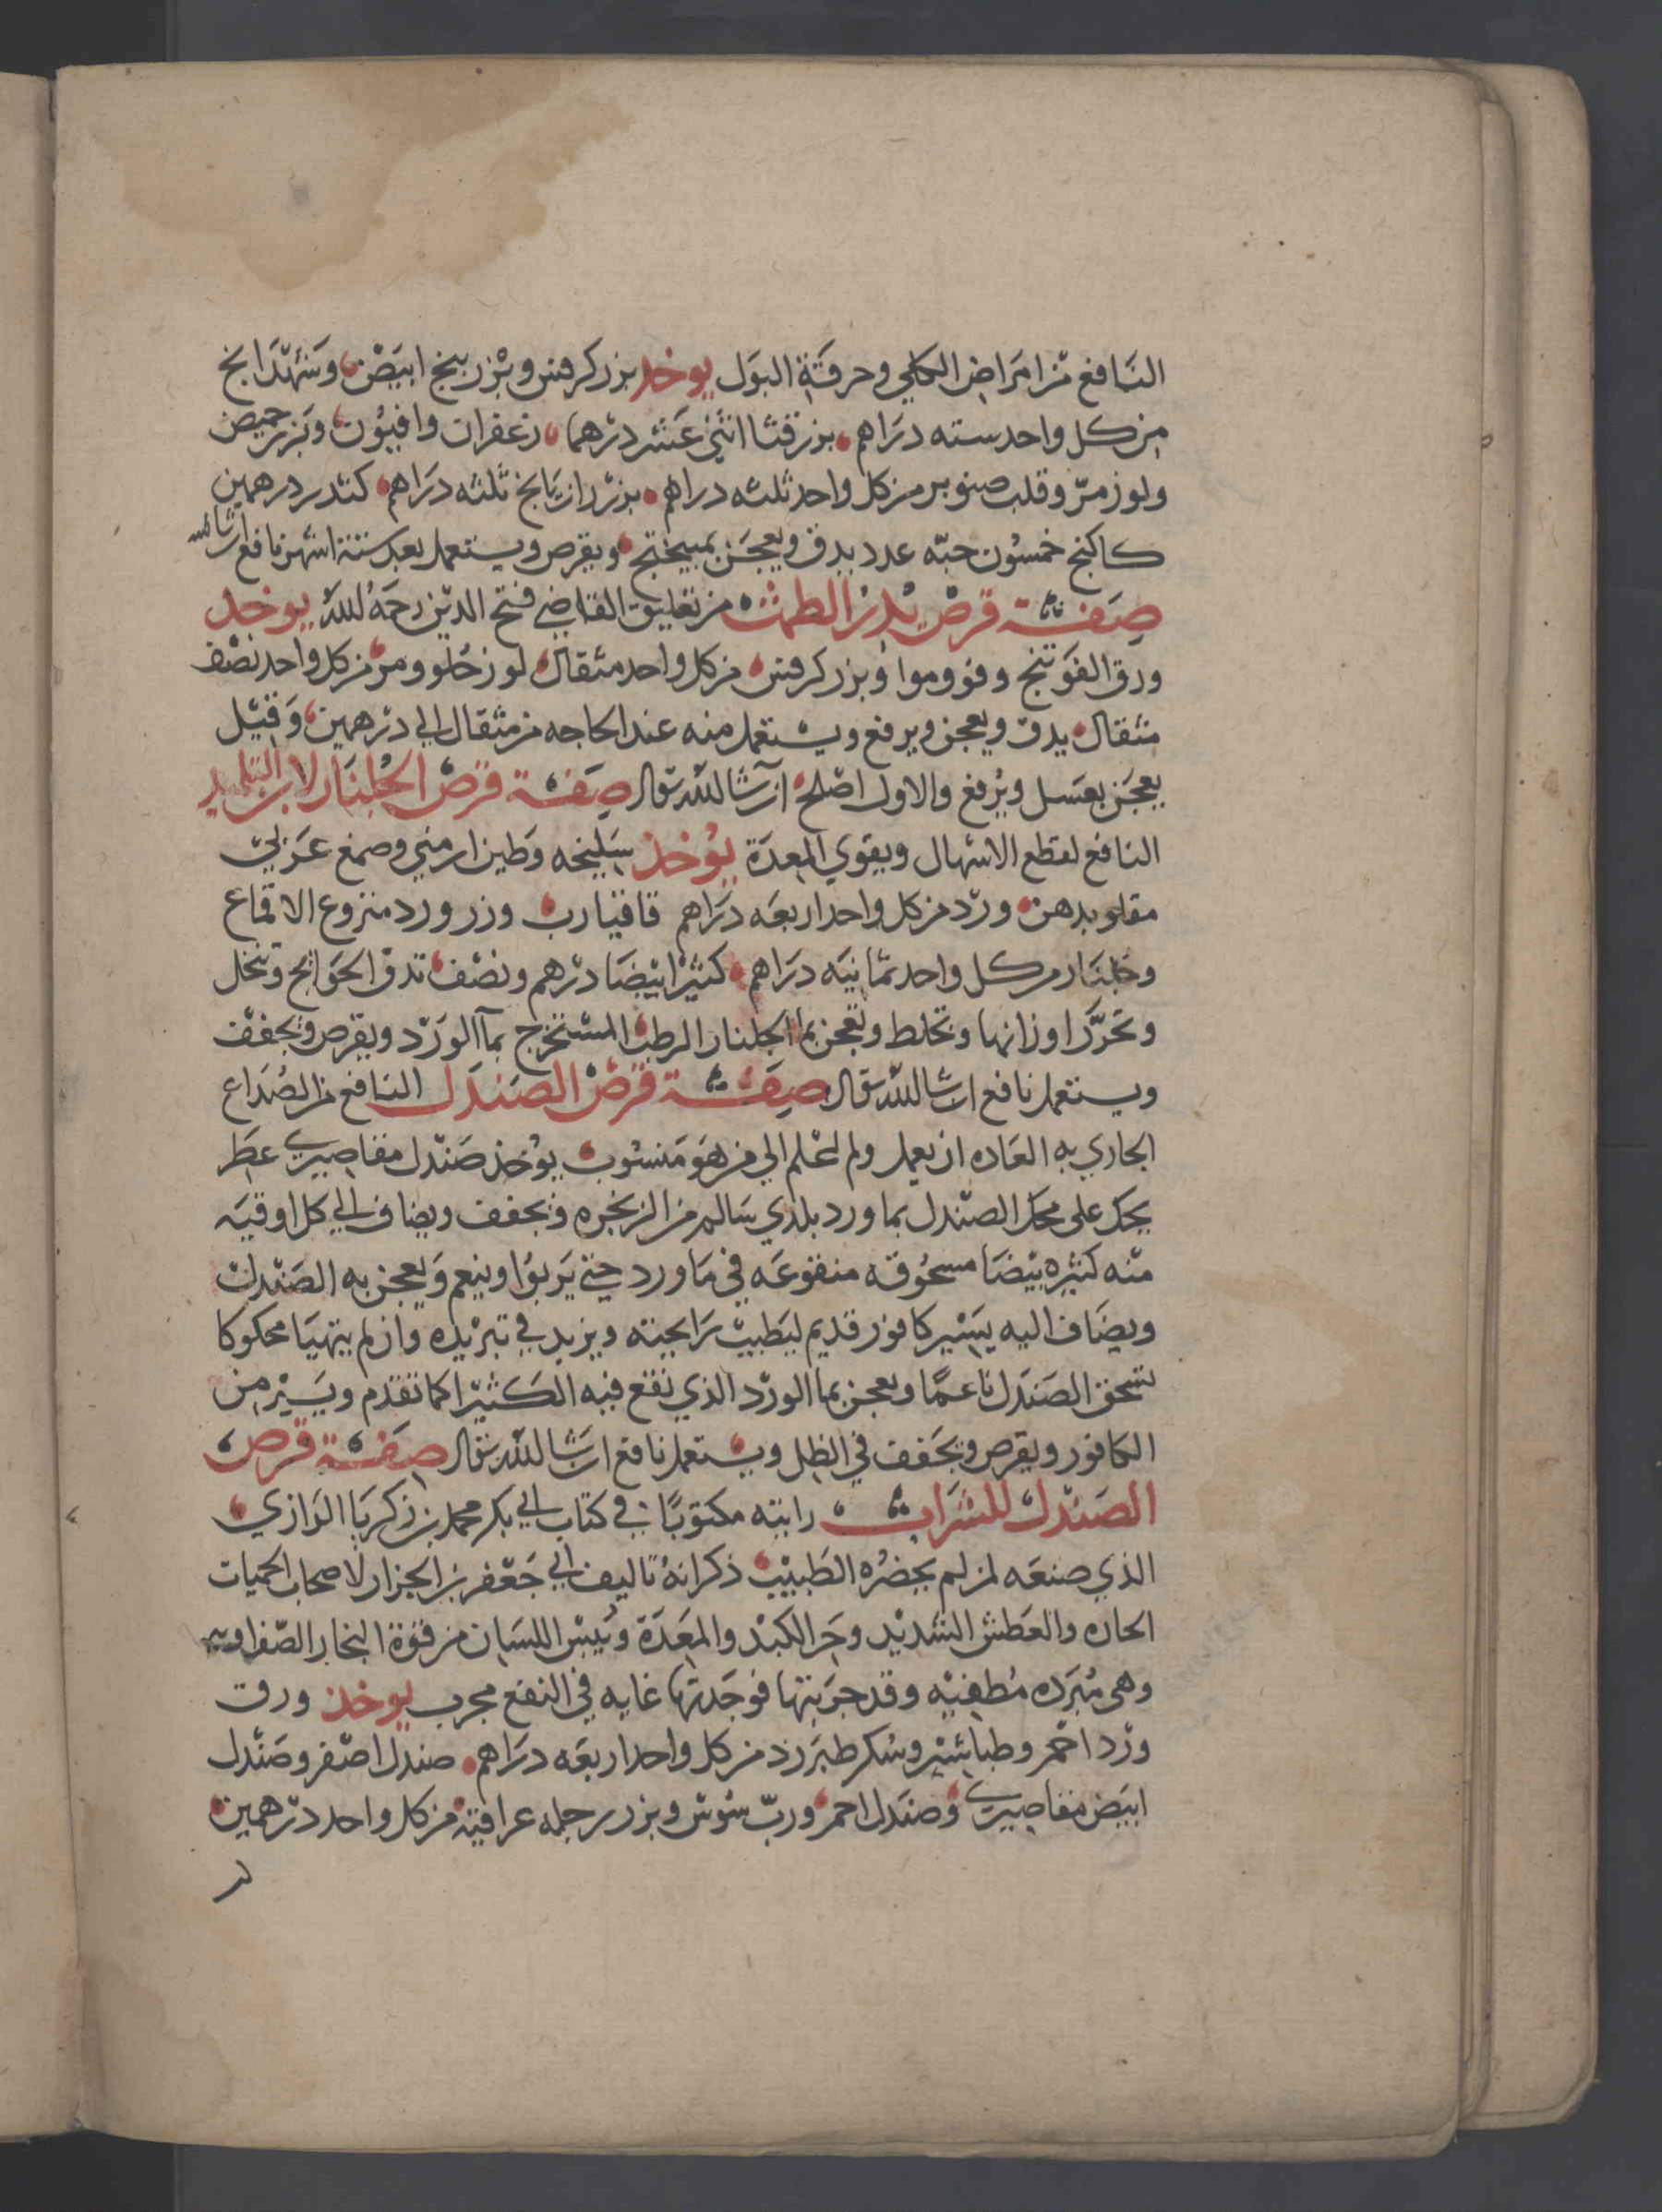 النافع من امراض الكلي وحرقة البول يوخذ بزر كرفس وبزر بنج ابيض وشهدانج
من كل واحد سته دراهم بزر قثا اثني عشر درهما زعفران وافيون وبزر حميض
ولوز مر وقلب صنوبر من كل واحد ثلثه دراهم بزر رازيانج ثلثه دراهم كندر درهمين
كاكنج خمسون حبه عدد يدق ويعجن بميبختج ويقرص ويستعمل بعد ستة اشهر نافع ان شا الله
صفة قرص يدر الطمث من تعليق القاضي فتح الدين رحمه الله يوخذ
ورق الفوتنج وفو وموا وبزر كرفس من كل واحد مثقال لوز حلو ومر من كل واحد نصف
مثقال يدق ويعجن ويرفع ويستعمل منه عند الحاجه من مثقال الي درهمين وقيل
يعجن بعسل ويرفع والاول اصلح ان شا الله تعالى صفة قرص الجلنار لابن التلميد
النافع لقطع الاسهال ويقوي المعدة يوخذ سليخه وطين ارمني وصمغ عربي
مقلو بدهن ورد من كل واحد اربعه دراهم قاقيا رب وزر ورد منزوع الاقماع
وجلنار من كل واحد ثمانيه دراهم كثيرا بيضا درهم ونصف تدق الحوايج وتنخل
وتحرر اوزانها وتخلط وتعجن بما الجلنار الرطب المستخرج بما الورد ويقرص ويجفف
ويستعمل نافع ان شا الله تعالى صفة قرص الصندل النافع من الصداع
الجاري به العاده ان يعمل ولم اعلم الي من هو منسوب يوخذ صندل مقاصيري عطر
يحك على محك الصندل بماورد بلدي سالم من الزنجره ويجفف ويضاف الي كل اوقيه
منه كثيره بيضا مسحوقه منقوعه في ماورد حتي يربوا وينعم ويعجن به الصندل
ويضاف اليه يسير كافور قديم ليطيب رايحته ويزيد في تبريده وان لم يتهيا محكوكا
تسحق الصندل ناعما ويعجن بما الورد الذي نقع فيه الكثيرا كما تقدم ويسير من
الكافور ويقرص ويجفف في الظل ويستعمل نافع ان شا الله تعالى صفة قرص
الصندل للشراب رايته مكتوبا في كتاب ابي بكر محمد بن زكريا الرازي
الذي صنعه لمن لم يحضره الطبيب ذكر انه تاليف ابي جعفر بن الجزار لاصحاب الحميات
الحاره والعطش الشديد وحر الكبد والمعدة ويبس اللسان من قوة البخار الصفراويه
وهى مبرده مطفيه وقد جربتها فوجدتها غايه في النفع مجرب يوخذ ورق
ورد احمر وطباشير وسكر طبرزد من كل واحد اربعه دراهم صندل اصفر وصندل
ابيض مقاصيري وصندل احمر ورب سوس وبزر رجله عراقية من كل واحد درهمين